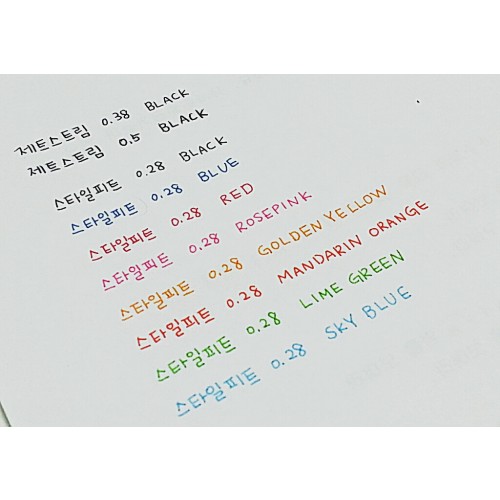 제트스트림 0.38 BLACK
제트스트림 0.5 BLACK
스타일피트 0.28 BLACK
스타일피트 0.28 BLUE
스타일피트 0.28 RED
스타일피트 0.28 ROSEPINK
스타일피트 0.28 GOLDEN YELLOW
스타일피트 0.28 MANDARIN ORANGE
스타일피트 0.28 LIME GREEN
스타일피트 0.28 SKY BLUE